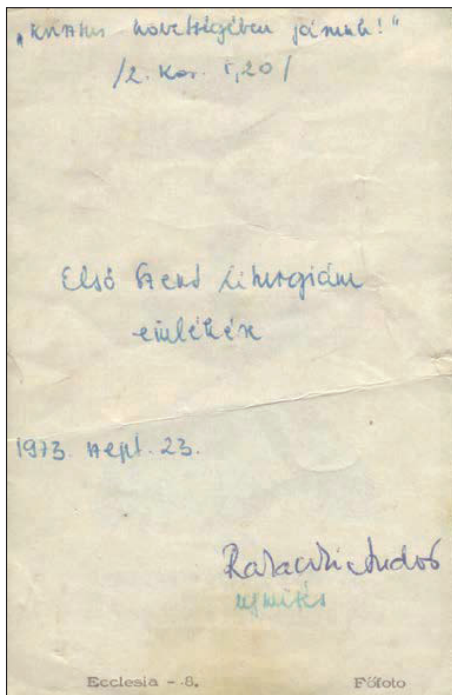 „Krisztus követségében járunk!"
/2. Kor. 5,20/
Első Szent Liturgiám
emlékére
1973. szept. 23.
újmisés
Ecclesia - 8. Főfotó